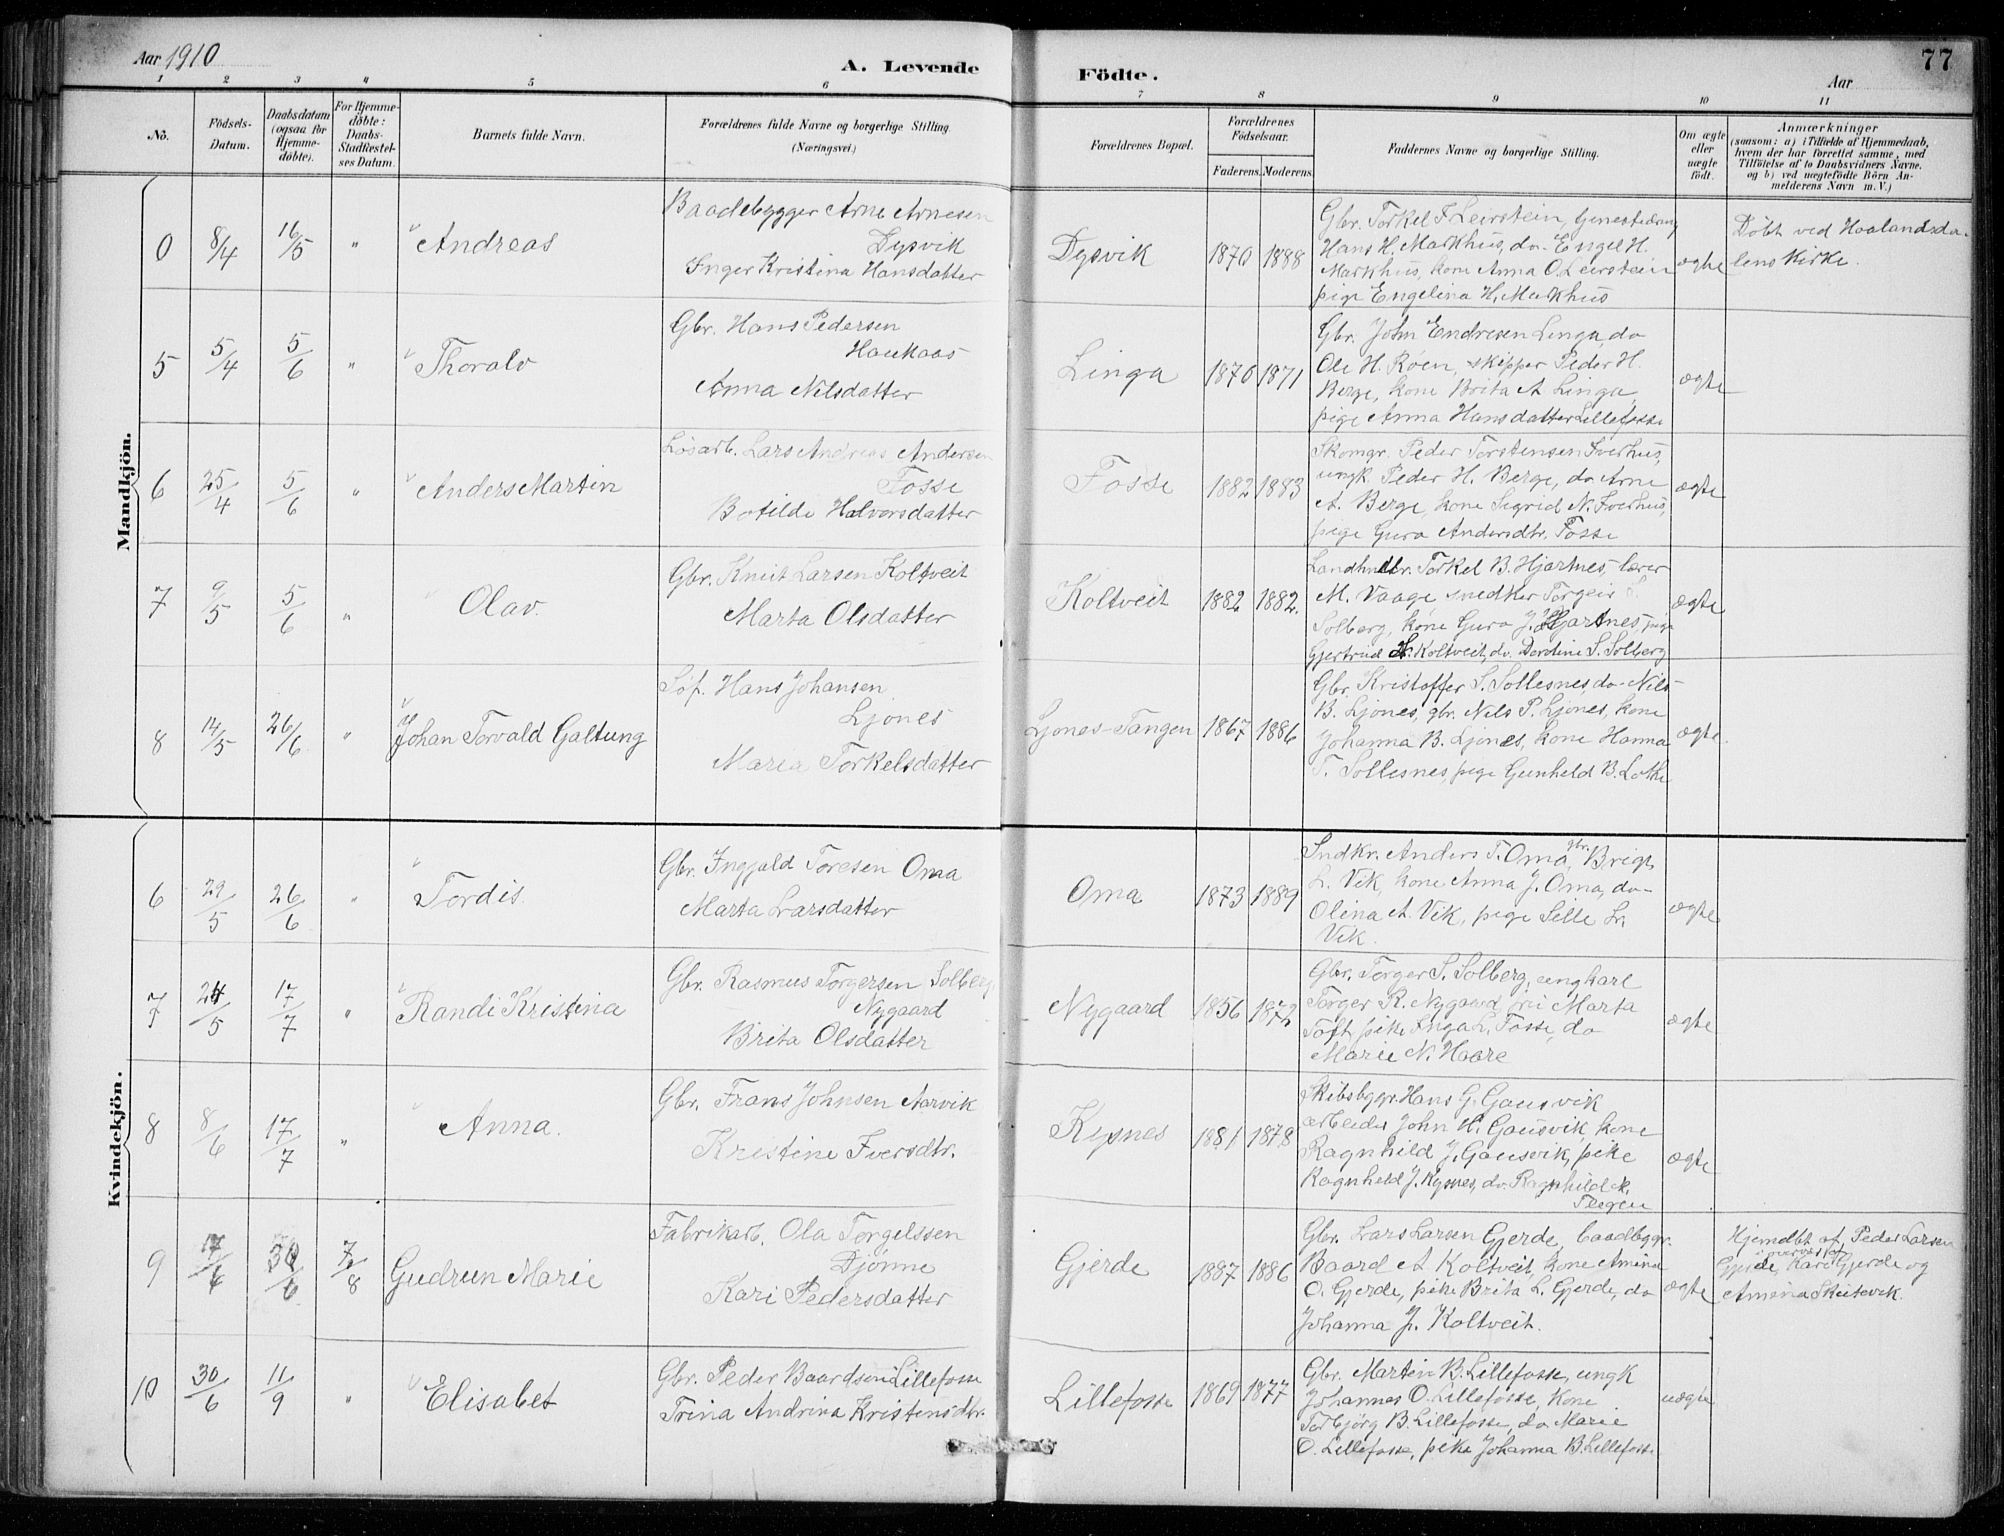 Aar 1910
A. Levende
Födte.
Aar
77
1 2 3 4 5 6 7 8 9 10 11
No.
Födsels-Datum.
Daabsdatum (ogsaa for Hjemme-döbte).
For Hjemme-döbte: Daabs-Stadfæstel-ses Datum.
Barnets fulde Navn.
Forældrenes fulde Navne og borgerlige Stilling.
(Næringsvei.)
Forældrenes Bopæl.
Forældrenes Födselsaar.
Faderens. Moderens.
Faddernes Navne og borgerlige Stilling.
Om ægte eller uægte födt.
Anmærkninger
(saasom: a) i Tilfælde af Hjemmedaab, hvem der har forrettet samme, med Tilföielse af to Daabsvidners Navne, og b) ved uægtefödte Börn An-melderens Navn m. V.)
Mandkjön.
0 8/4 16/5 " Andreas
Baadebygger Arne Arnesen
Dysvik
Inger Kristina Hansdatter
Dysvik 1870 1888
Gbr. Torkel F Leirstein,
Hans H. Markhus, do. Engel H.
Markhus, kone Anna O. Leirstein
pige Engelina H. Markhus
ægte
Döbt ved Haalandsda-
lens Kirke.
5 5/4 5/6 " Thoralv
Gbr. Hans Pedersen
Haukaas
Anna Nilsdatter
Linga 1870 1871
Gbr. John Endresen Linga, do
Ole H. Røen, skipper Peder H.
Berge, kone Brita A Linga,
pige Anna Hansdatter Lillefosse
ægte
6 25/4 5/6 " Anders Martin
Løsarb. Lars Andreas Andersen
Fosse
Botilde Halvorsdatter
Fosse 1882 1883
Skomgr. Peder Torstensen Sverhus,
ungk. Peder H. Berge, do Arne
A. Berge, kone Sigrid N. Sverhus,
pige Gura Andersdtr. Fosse
ægte
7 9/5 5/6 " Olav.
Gbr. Knut Larsen Koltveit
Marta Olsdatter
Koltveit 1882 1882.
Landhndlr. Torkel B. Hjartnes, lærer
M. Vaage snedker Torgeir S.
Solberg, kone Gura J. Hjartnes, pige
Gjertrud K. Koltveit, do. Dortine S. Solberg
ægte
8 14/5 26/6 " Johan Torvald Galtung
Søf. Hans Johansen
Ljones
Maria Torkelsdatter
Ljones-Tangen 1867 1886
Gbr. Kristoffer S. Sollesnes, do-Nils-
B. Ljones, gbr. Nils P. Ljones, kone
Johanna B. Ljones, kone Hanna
T. Sollesnes, pige Gunheld B. Lothe
ægte
Kvindekjön.
6 29/5 26/6 " Tordis.
Gbr. Ingjald Toresen Oma
Marta Larsdatter
Oma 1873 1889
Sndkr. Anders T. Oma, gbr. Brigt
L. Vik, kone Anna J. Oma, do-
Olina A. Vik, pige Sille L.
Vik.
ægte
7 24/5 17/7 " Randi Kristina
Gbr. Rasmus Torgersen Solberg
Nygaard
Brita Olsdatter
Nygaard 1856 1872
Gbr. Torger S. Solberg, ungkarl
Torger R. Nygaard, Marta
Toft pike Inga L. Fosse, do
Marie N. Haare
ægte
8 8/6 17/7 " Anna.
Gbr. Frans Johnsen Aarvik
Kristine Iversdtr.
Kysnes 1881 1878
Skibsbygr. Hans G. Gausvik
arbeider John H. Gausvik, kone
Ragnhild J. Gausvik, pike
Ragnheld J. Kysnes, do. Ragnhild K.
Teigen
ægte
9 17/6 30/6 7/8 Gudrun Marie
Fabrikarb. Ola Torgelssen
Djønne
Kari Pedersdatter
Gjerde 1887 1886
Gbr. Lars Larsen Gjerde, baadbggr.
Baard A. Koltveit, kone Amina
O. Gjerde, pike Brita L. Gjerde, do
Johanna J. Koltveit.
ægte
Hjemdbt af Peder Larsen
Gjerde, nærvær af Kari Gjerde og
Amina Skeisvik.
10 30/6 11/9 " Elisabet
Gbr. Peder Baardsen Lillefosse
Trina Andrina Kristensdtr.
Lillefosse 1869 1877
Gbr. Martin B. Lillefosse, ungk
Johannes O. Lillefosse, kone
Torbjørg B. Lillefosse, do Marie
O. Lillefosse, pike Johanna B. Lillefosse
uægte